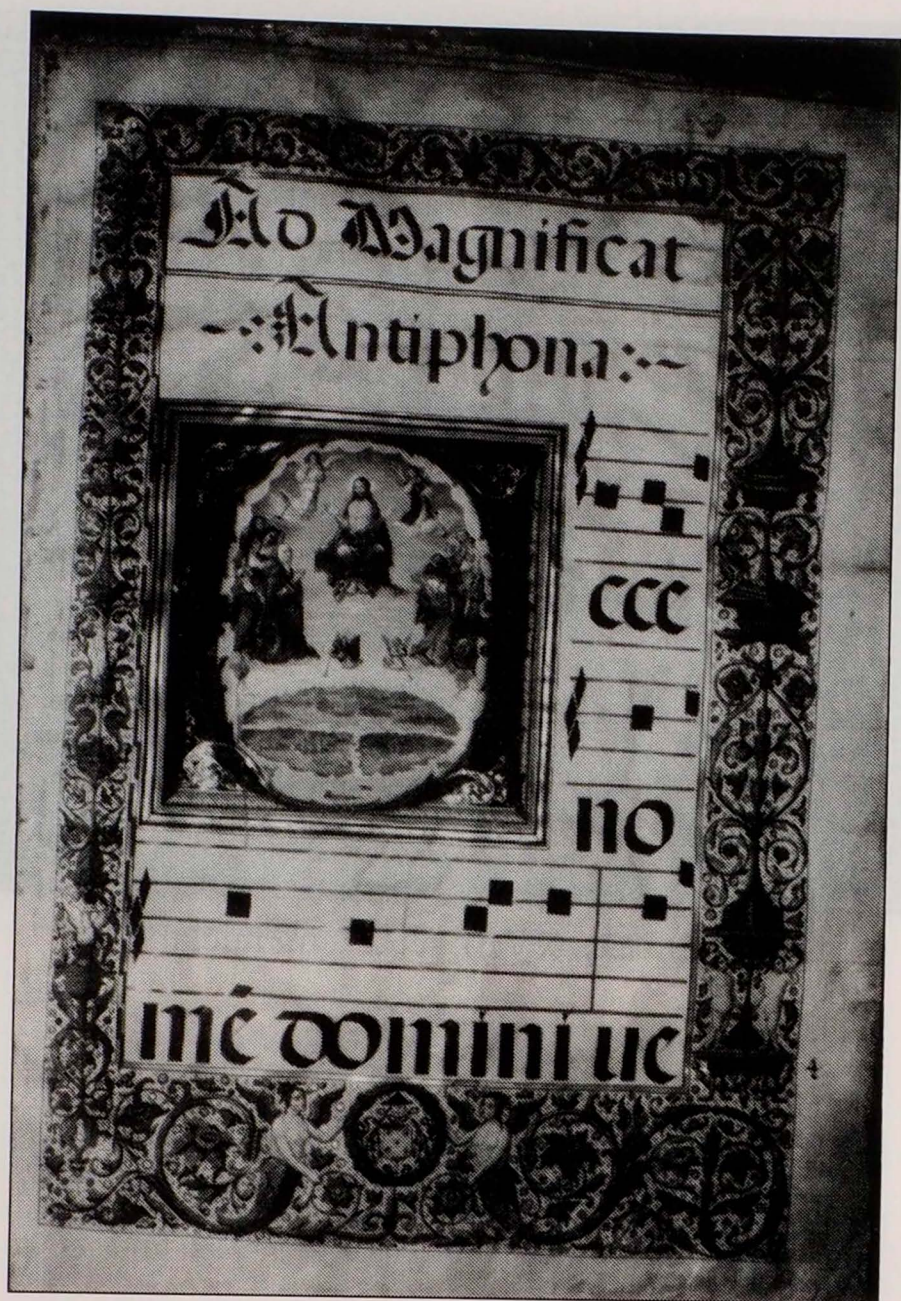 Ad Magnificat
-:Antiphona:-
cce
no
mé domini ue
4